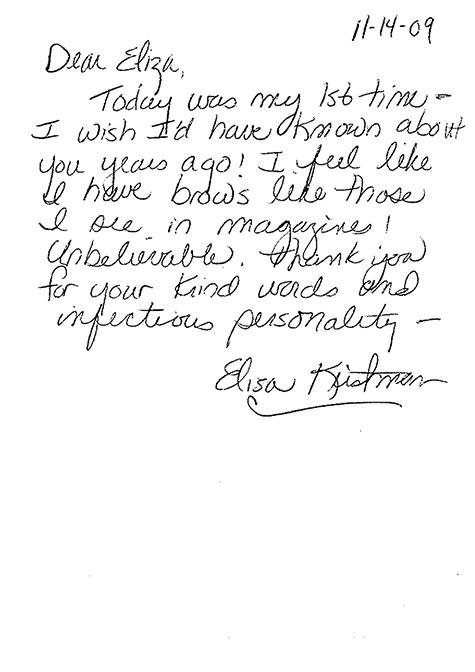 11-14-09
Dear Eliza,
Today was my 1st time -
I wish I'd have known about
you years ago! I feel like
I have brows like those
I see in magazines!
Unbelievable. Thank you
for your kind words and
infectious personality -
Elisa